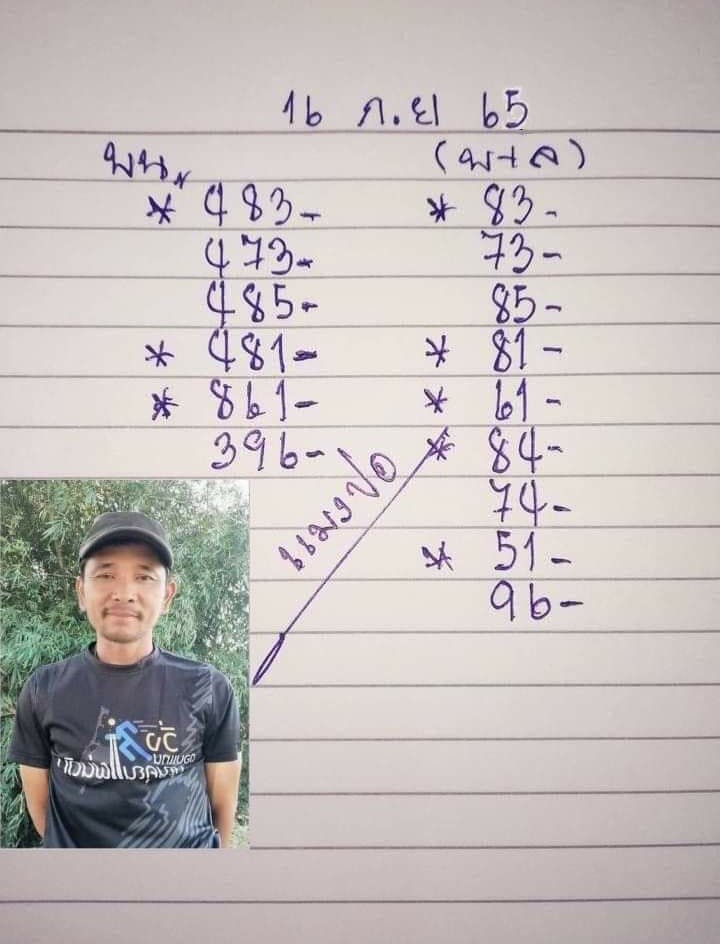 16 ก.ย 65
บน. (บ+ล)
* 483- * 83-
473- 73-
485- 85-
* 481- * 81-
* 861- * 61-
396- * 84-
74-
* 51-
96-
แมงปอ
วิ่ง